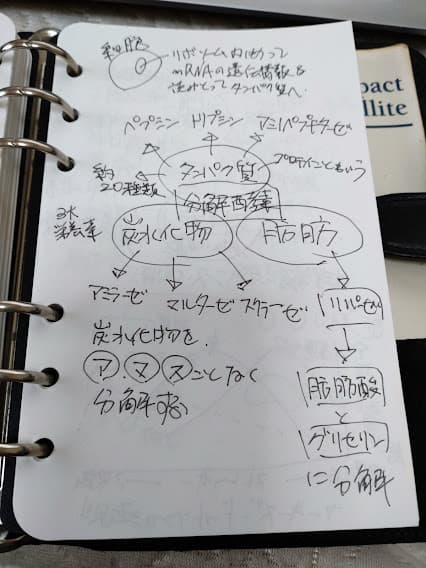 細胞
リボソームはmRNAの遺伝情報を
読みとってタンパク質へ
pact
ellite
ペプシン トリプシン アミノペプチターゼ
約20種類
タンパク質
プロテインともいう
分解酵素
3大栄養素
炭水化物
脂肪
アミラーゼ マルターゼ スクラーゼ
リパーゼ
炭水化物を
ア.マ.スことなく
分解する
脂肪酸
と
グリセリン
に分解